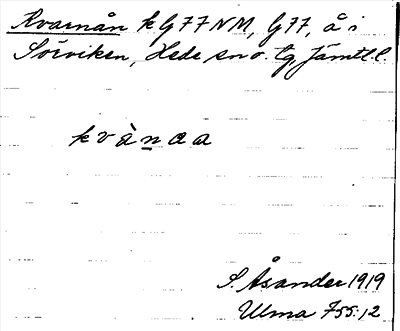 Kvarnån k G77NM, G77, å i
Sörviken, Hede sn o. tg, Jämtl. l.
kvànaa
S. Åsander 1919
Ulma 755:12